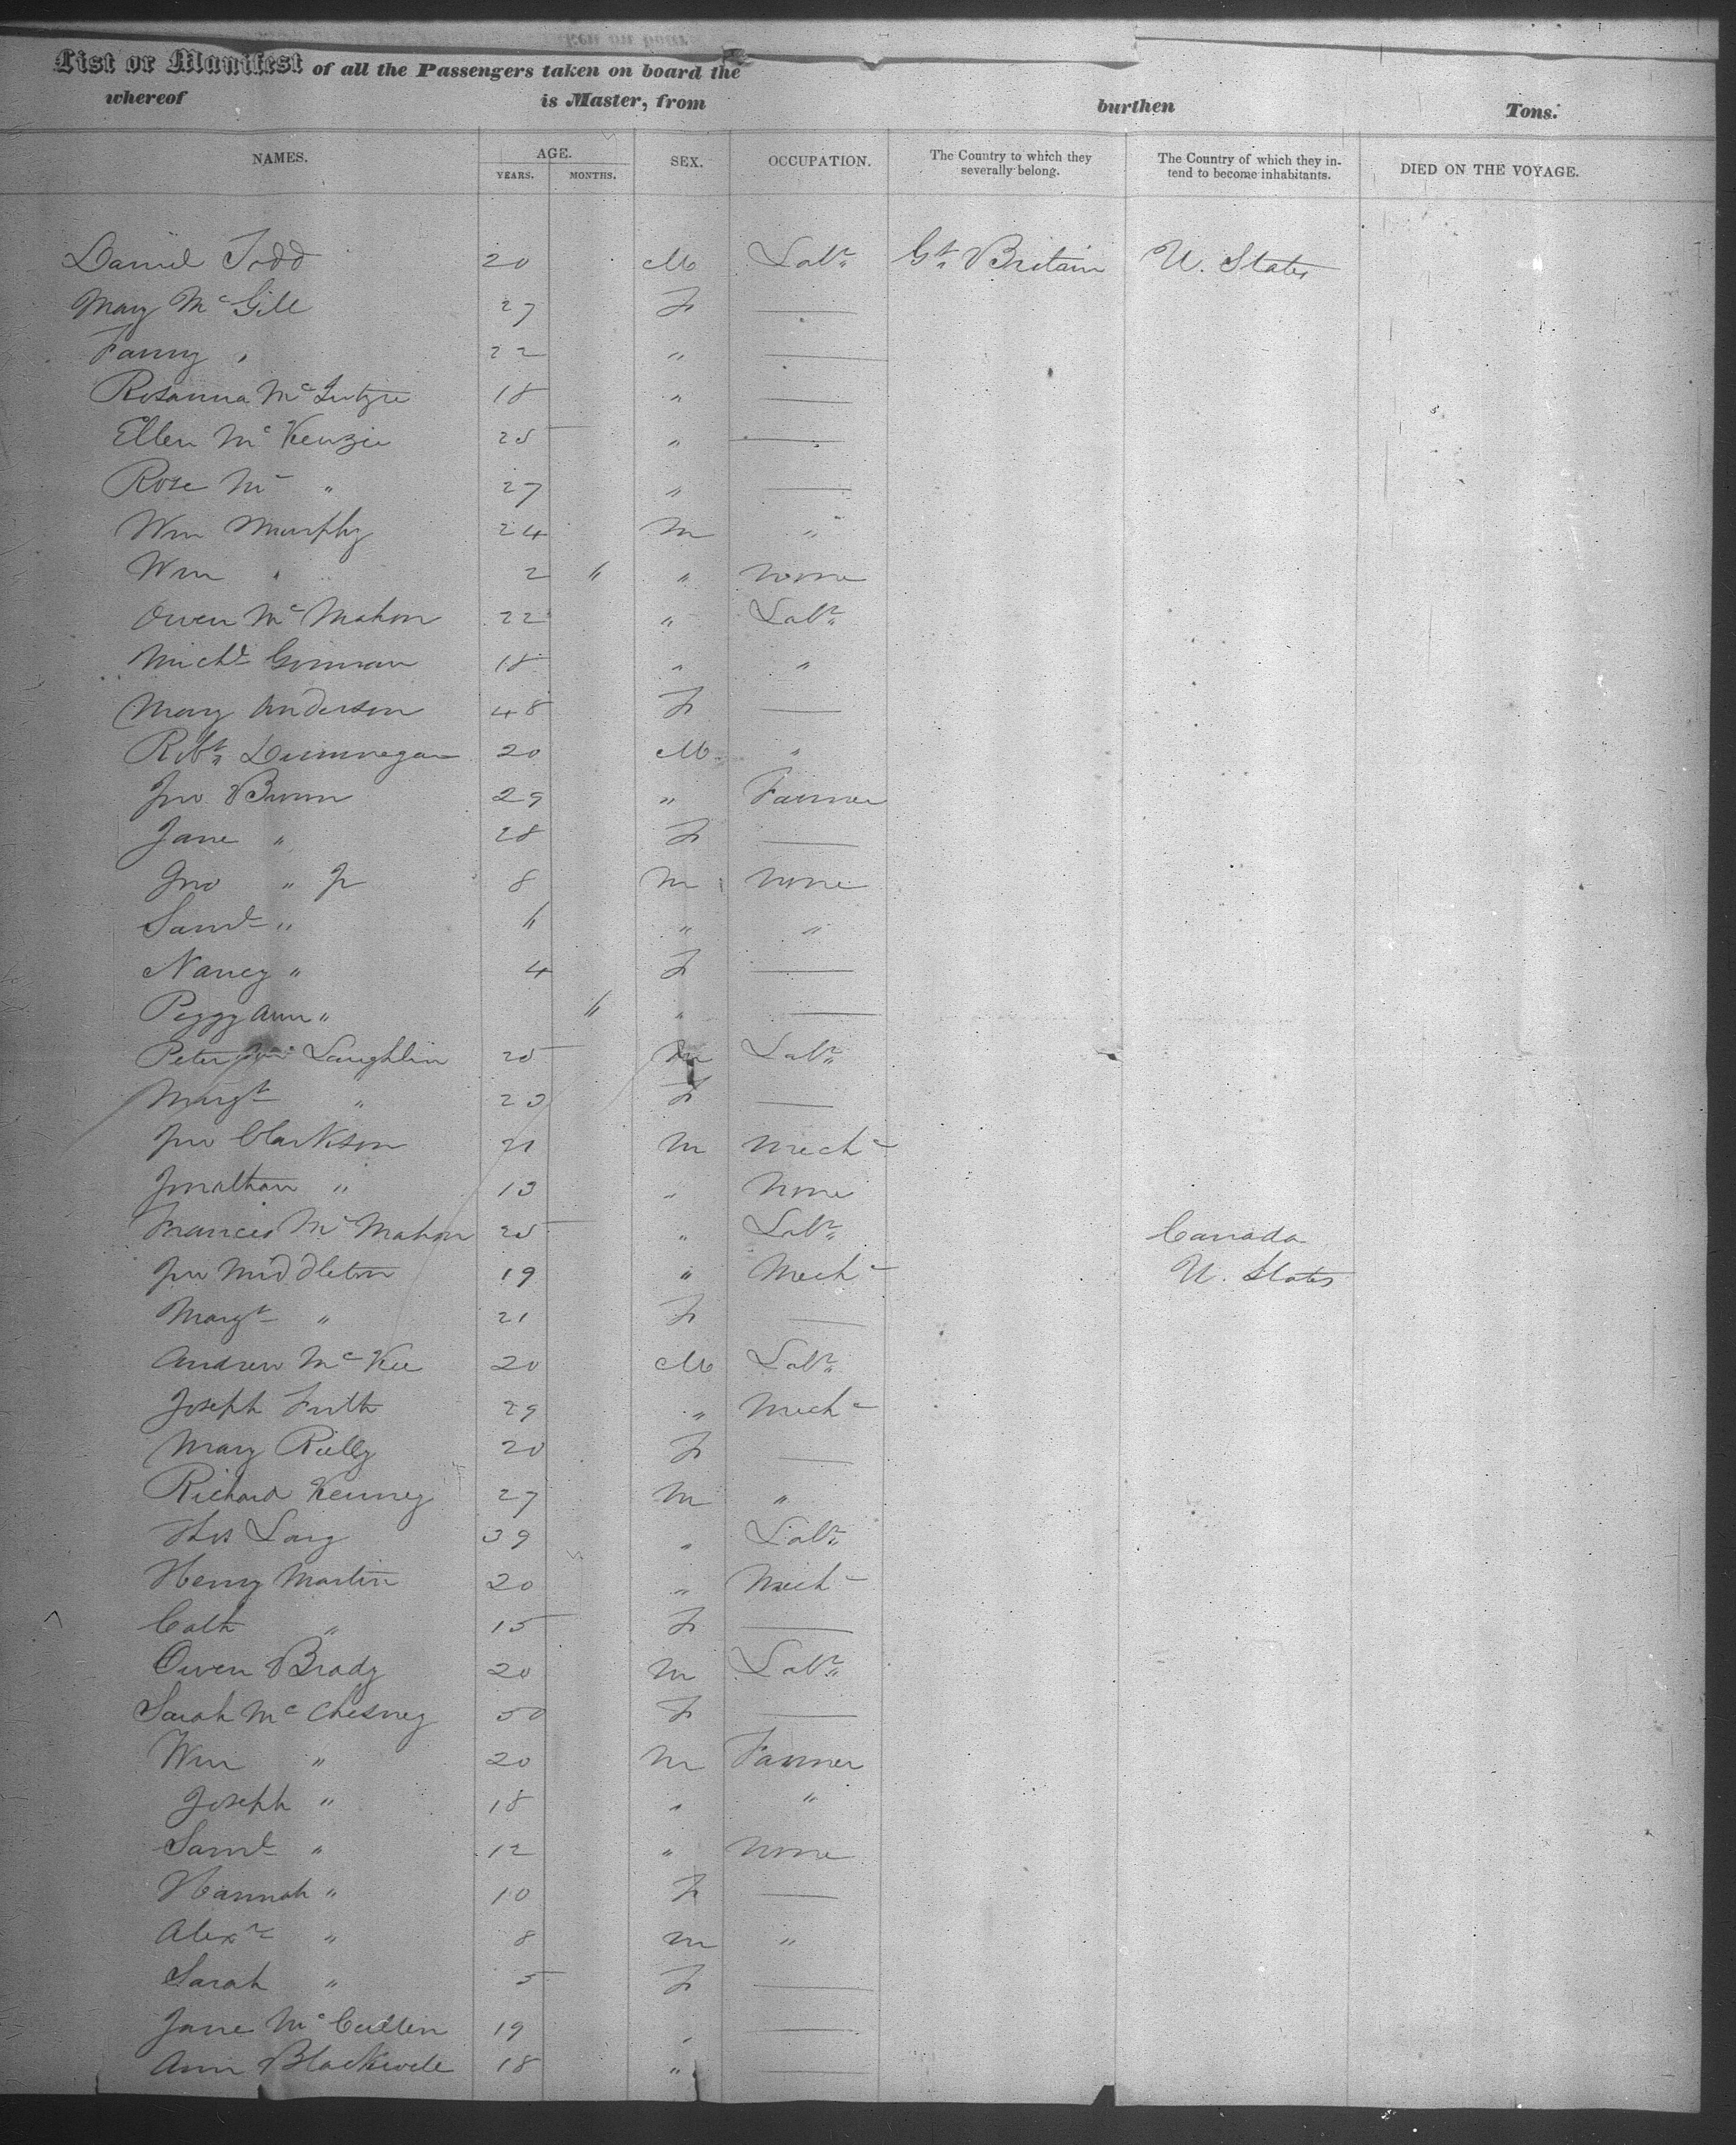 List or Manifest of all the Passengers taken on board the
whereof is Master, from burthen Tons.
NAMES. AGE. SEX. OCCUPATION. The Country to which they severally belong. The Country of which they intend to become inhabitants. DIED ON THE VOYAGE.
YEARS. MONTHS.
Daniel Todd 20 M Labr Gt Britain U. States
Mary McGill 27 F —
Fanny " 22 " —
Rosanna 18 " —
Ellen McKenzie 25 " —
Rose Mc " 27 " —
Wm Murphy 24 M "
Wm " 2 " " None
Owen McMahon 22 " Labr
Michl Gorman 18 " "
Mary Anderson 48 F —
Robt 20 M "
Jno 29 " Farmer
Jane " 28 F —
Jno " Jr 8 M None
Saml " 6 " "
Nancy " 4 F —
Peggy Ann " 6 " —
Peter Laughlin 25 M Labr
Margt " 23 F —
Jno Clarkson 21 M Mech
Jonathan " 13 " None
Francis McMahon 25 " Labr Canada
Jno Middleton 19 " Mech U. States
Margt " 21 F —
Andrew McKee 20 M Labr
Joseph 29 " Mech
Mary Rielly 20 F —
Richard Kenney 27 M "
Thos 39 " Labr
Henry Martin 20 " Mech
Cath " 15 F —
Owen Brady 20 M Labr
Sarah McChesney 50 F —
Wm " 20 M Farmer
Joseph " 18 " "
Saml " 12 " None
Hannah " 10 F —
Alexr " 8 M "
Sarah " 5 F —
Jane McCullen 19 " —
Ann Blackwell 18 " —